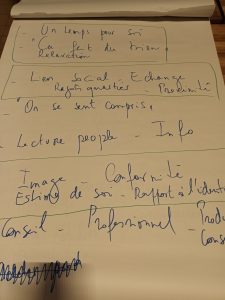 - Un temps pour soi
- Ça fait du bien.
Relaxation
- Lien social - Echange
- Proximité
- On se sent compris.
- Lecture people - Info
Image Conformité
Estime de soi - Rapport à l'identi
Conseil - Professionnel - Produ
Cons